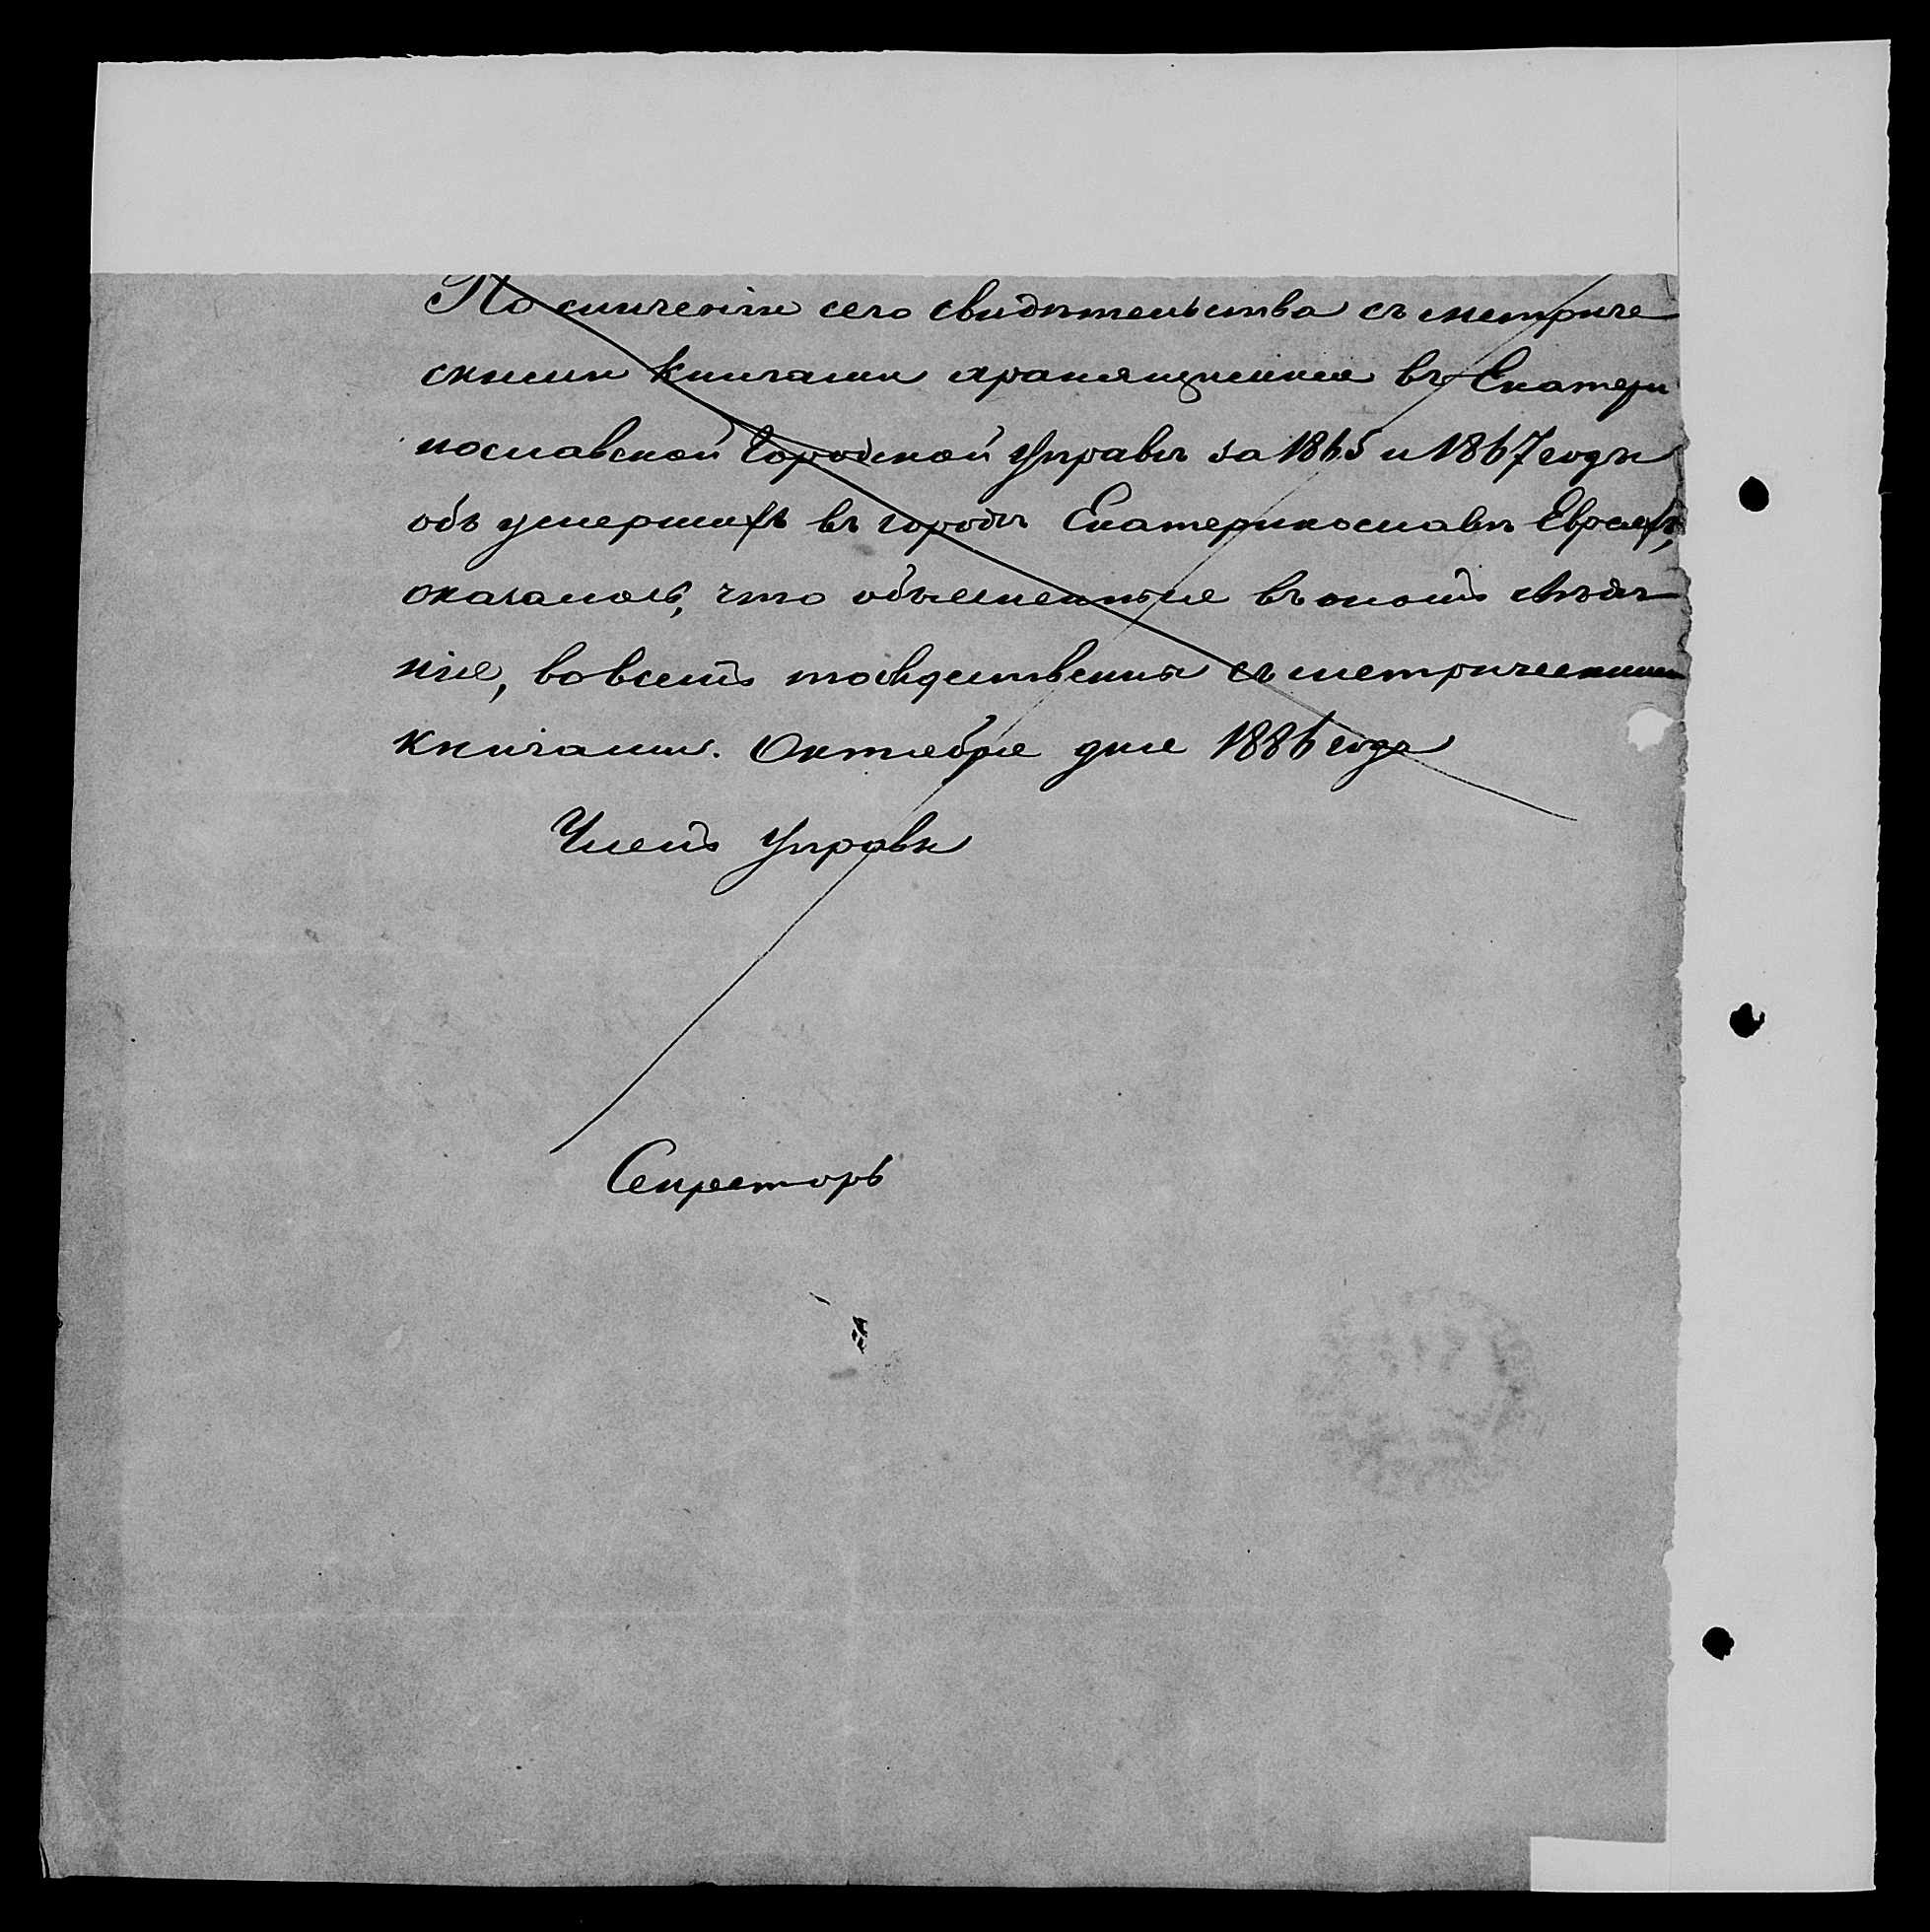 По сличеніи сего свидѣтельства съ метриче
скими книгами хранящимися въ Екатери
нославской Городской Управѣ за 1865 и 1867 годы
объ умершихъ въ городѣ Екатеринославѣ Евреяхъ,
оказалось, что объясненные въ ономъ свѣдѣ
нія, во всемъ тождественны съ метрическими
книгами. Октября дня 1886 года
Членъ Управы
Секретарь